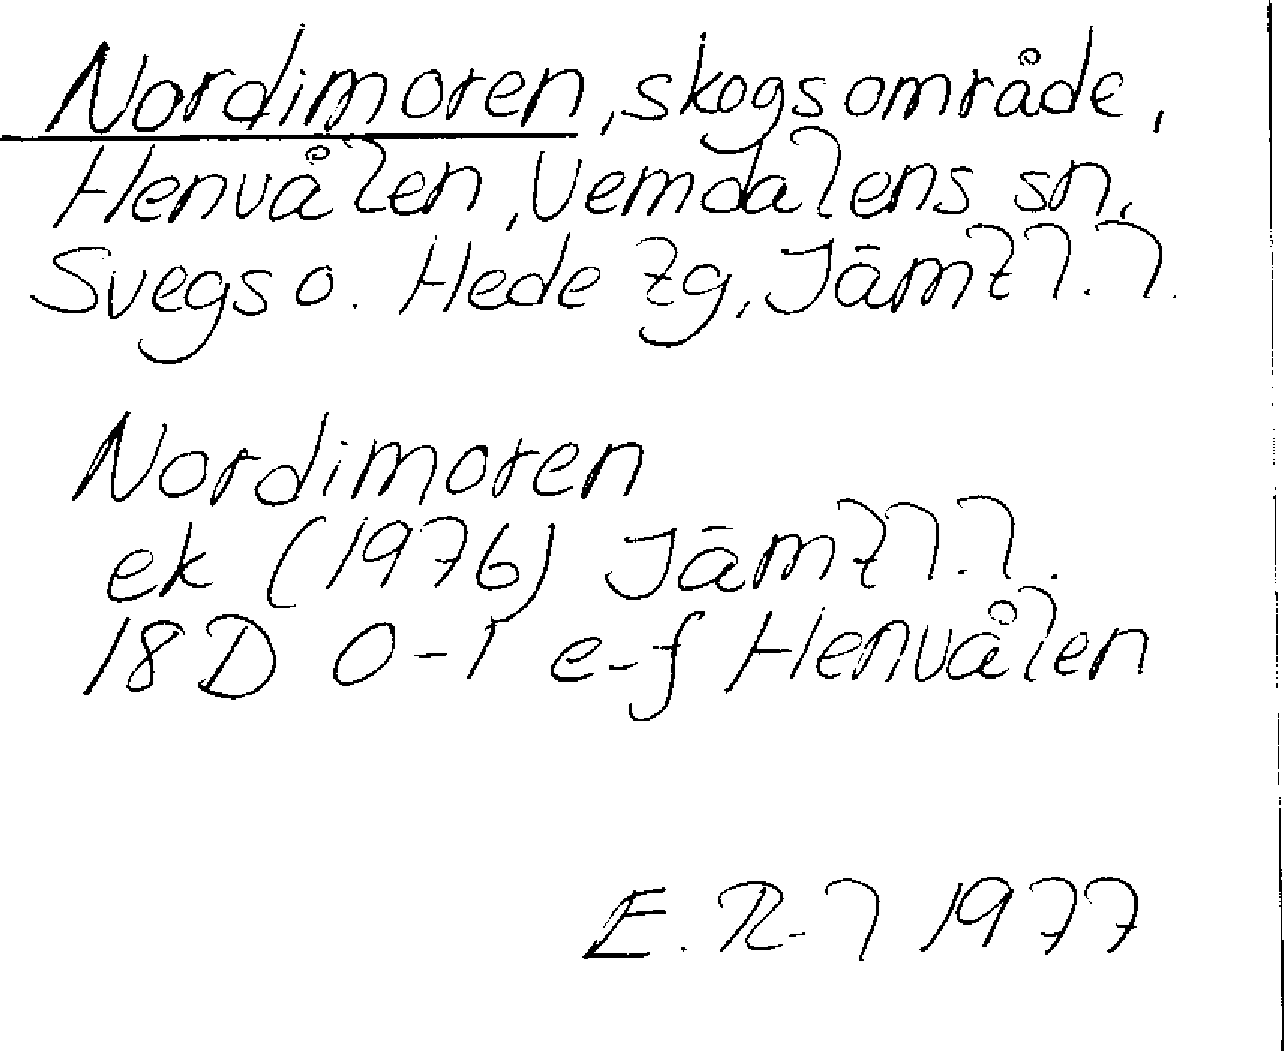 Nordimoren, skogsområde,
Henvålen, Vemdalens sn,
Svegs o. Hede tg, Jämtl.l.
Nordimoren
ek (1976) Jämtl.l.
18D 0-1 e-f Henvålen
E. R-l 1977